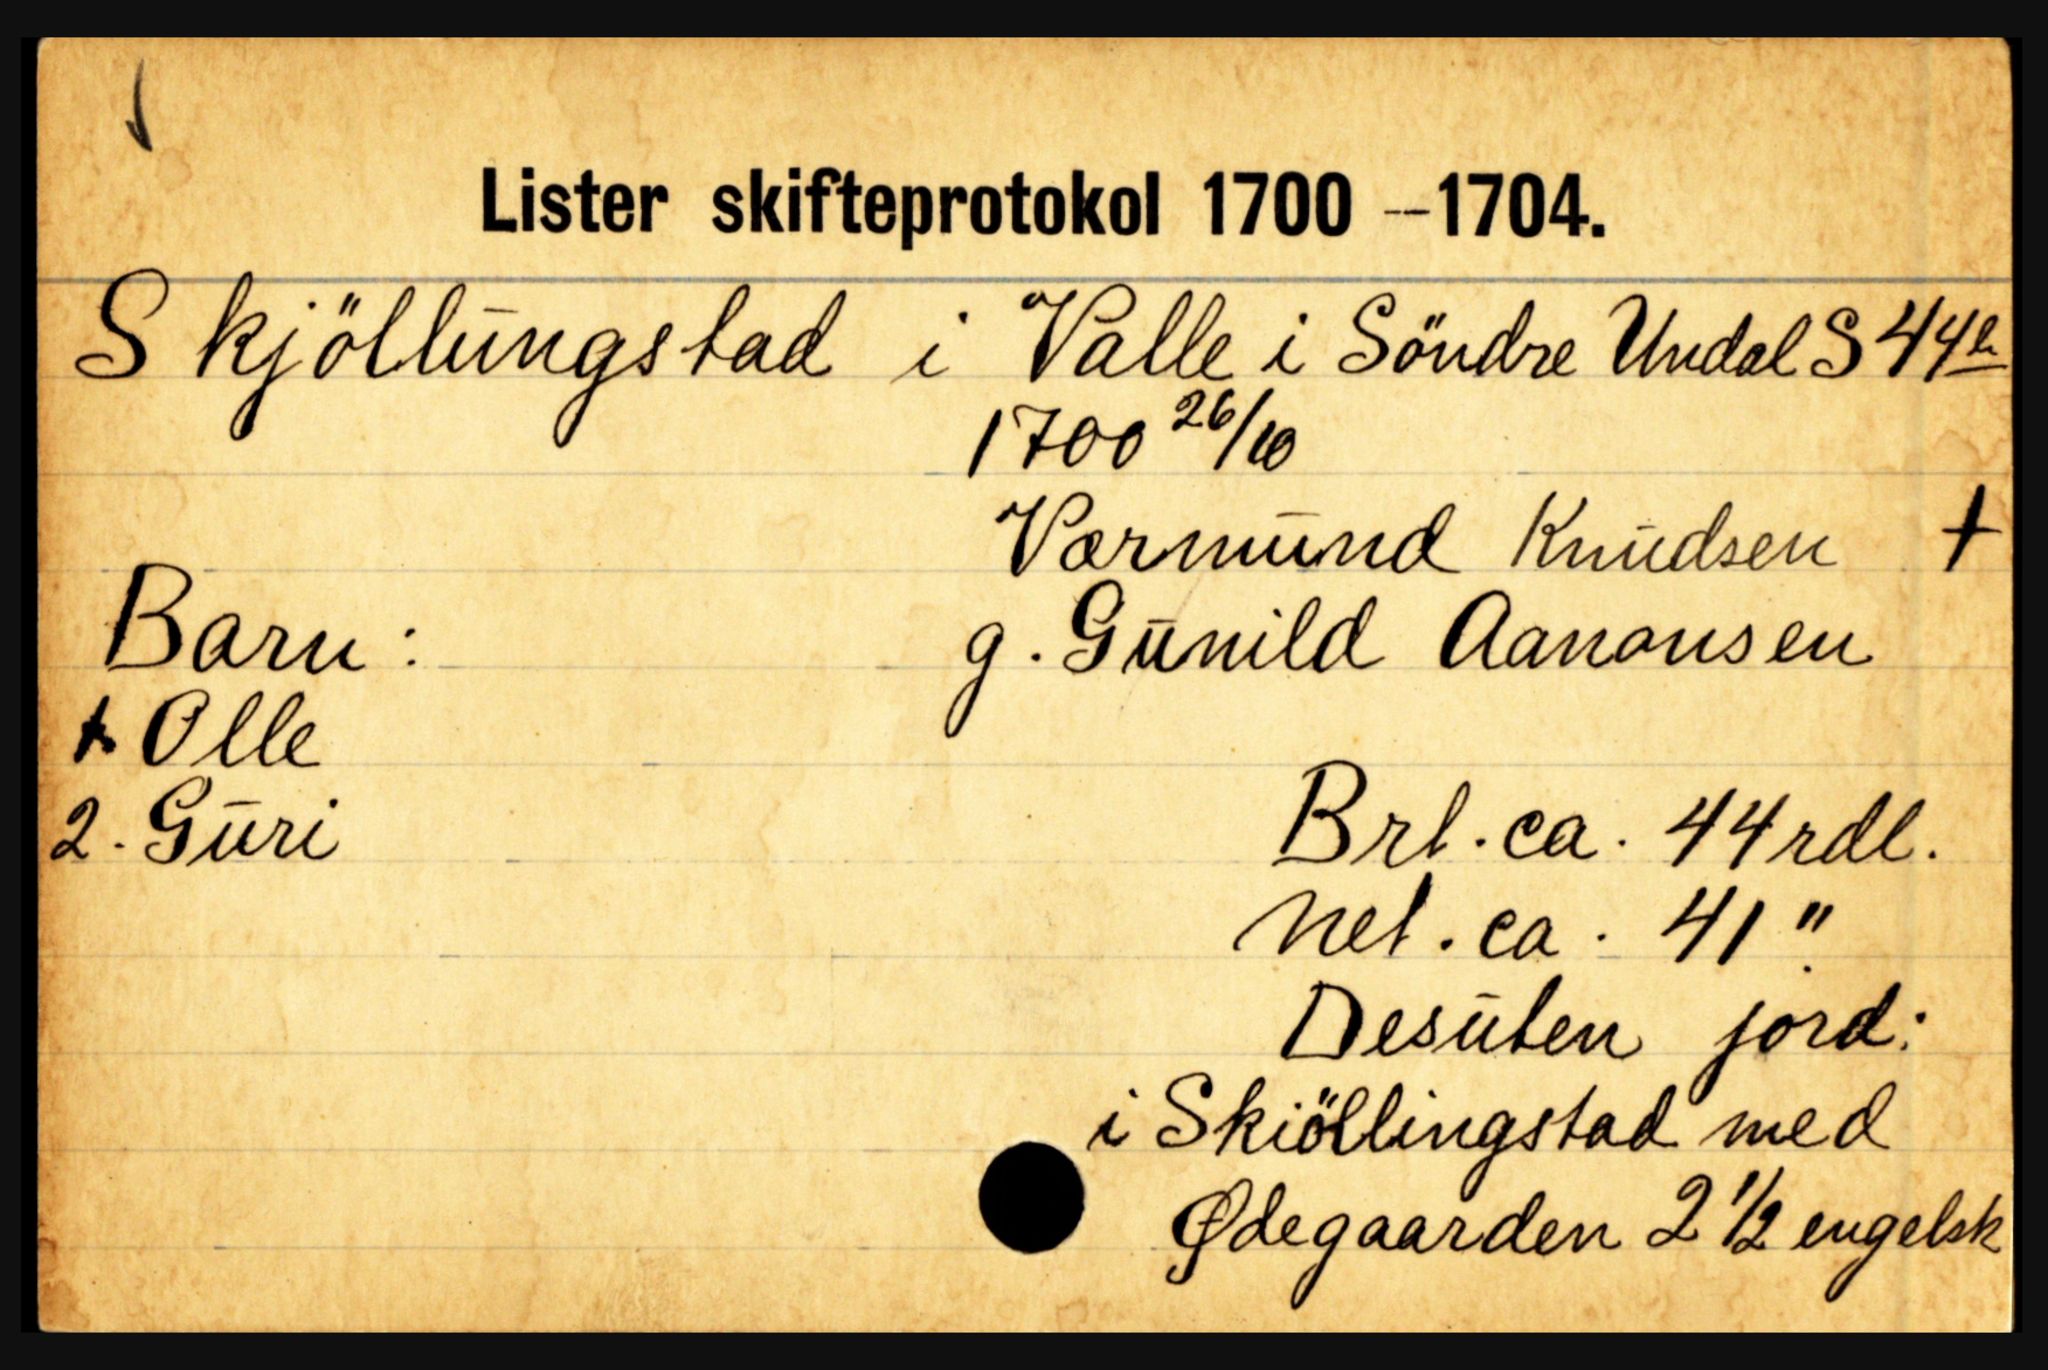 Lister skifteprotokol 1700 -- 1704.
Skjöllungstad i Valle i Söndre Undal S 44b
1700 26/10
Varmund Knudsen +
Barn: g. Gunild Aanonsen
1. Olle
2. Guri Brt. ca. 44 rdl.
Net. ca. 41 "
Desuten jord:
i Skiöllingstad med
Ødegaarden 2 1/2 engelsk